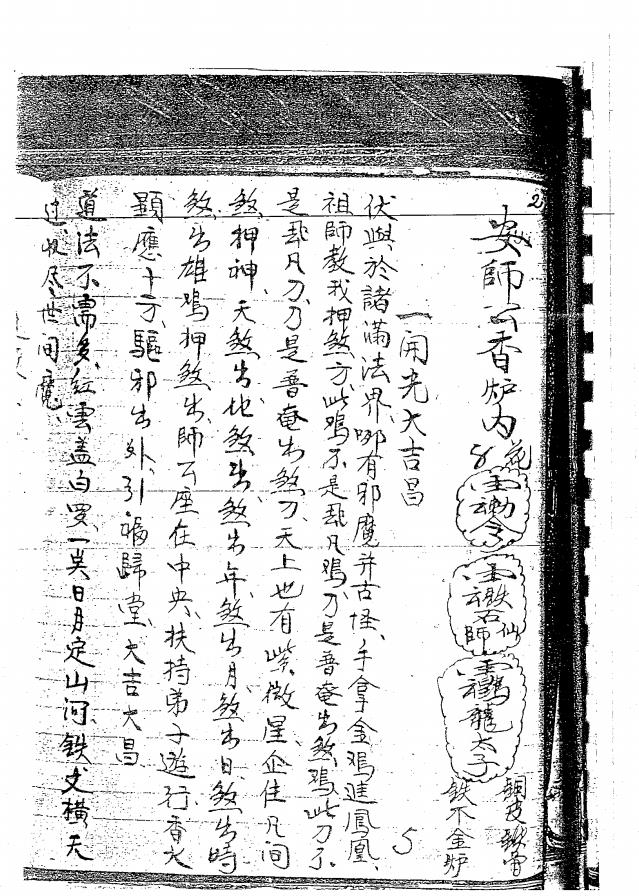 2
安師公香炉内
花
玉勅令
玉鉄石仙師
龍太子
銅皮鉄骨
鉄不金炉
5
一開光大吉昌
伏與於諸滿法界哪有邪魔并古怪、手拿金鸡進鳳凰、
祖師教我押煞方、此鸡不是乱凡鸡乃是普奄出煞鸡、此刀不
是乱凡刀、刀是普奄出煞刀、天上也有紫微星、企住凡間
煞押神、天煞出地煞出、煞出年煞出月煞出日、煞出時
煞出雄鸡押煞出、師公座在中央、扶持弟子遊行香火
顯應十方、驅邪出外、引福歸堂、大吉大昌
道法不需多、紅雲盖白 一 日月定山河、鉄 橫天
过、收尽世间魔、